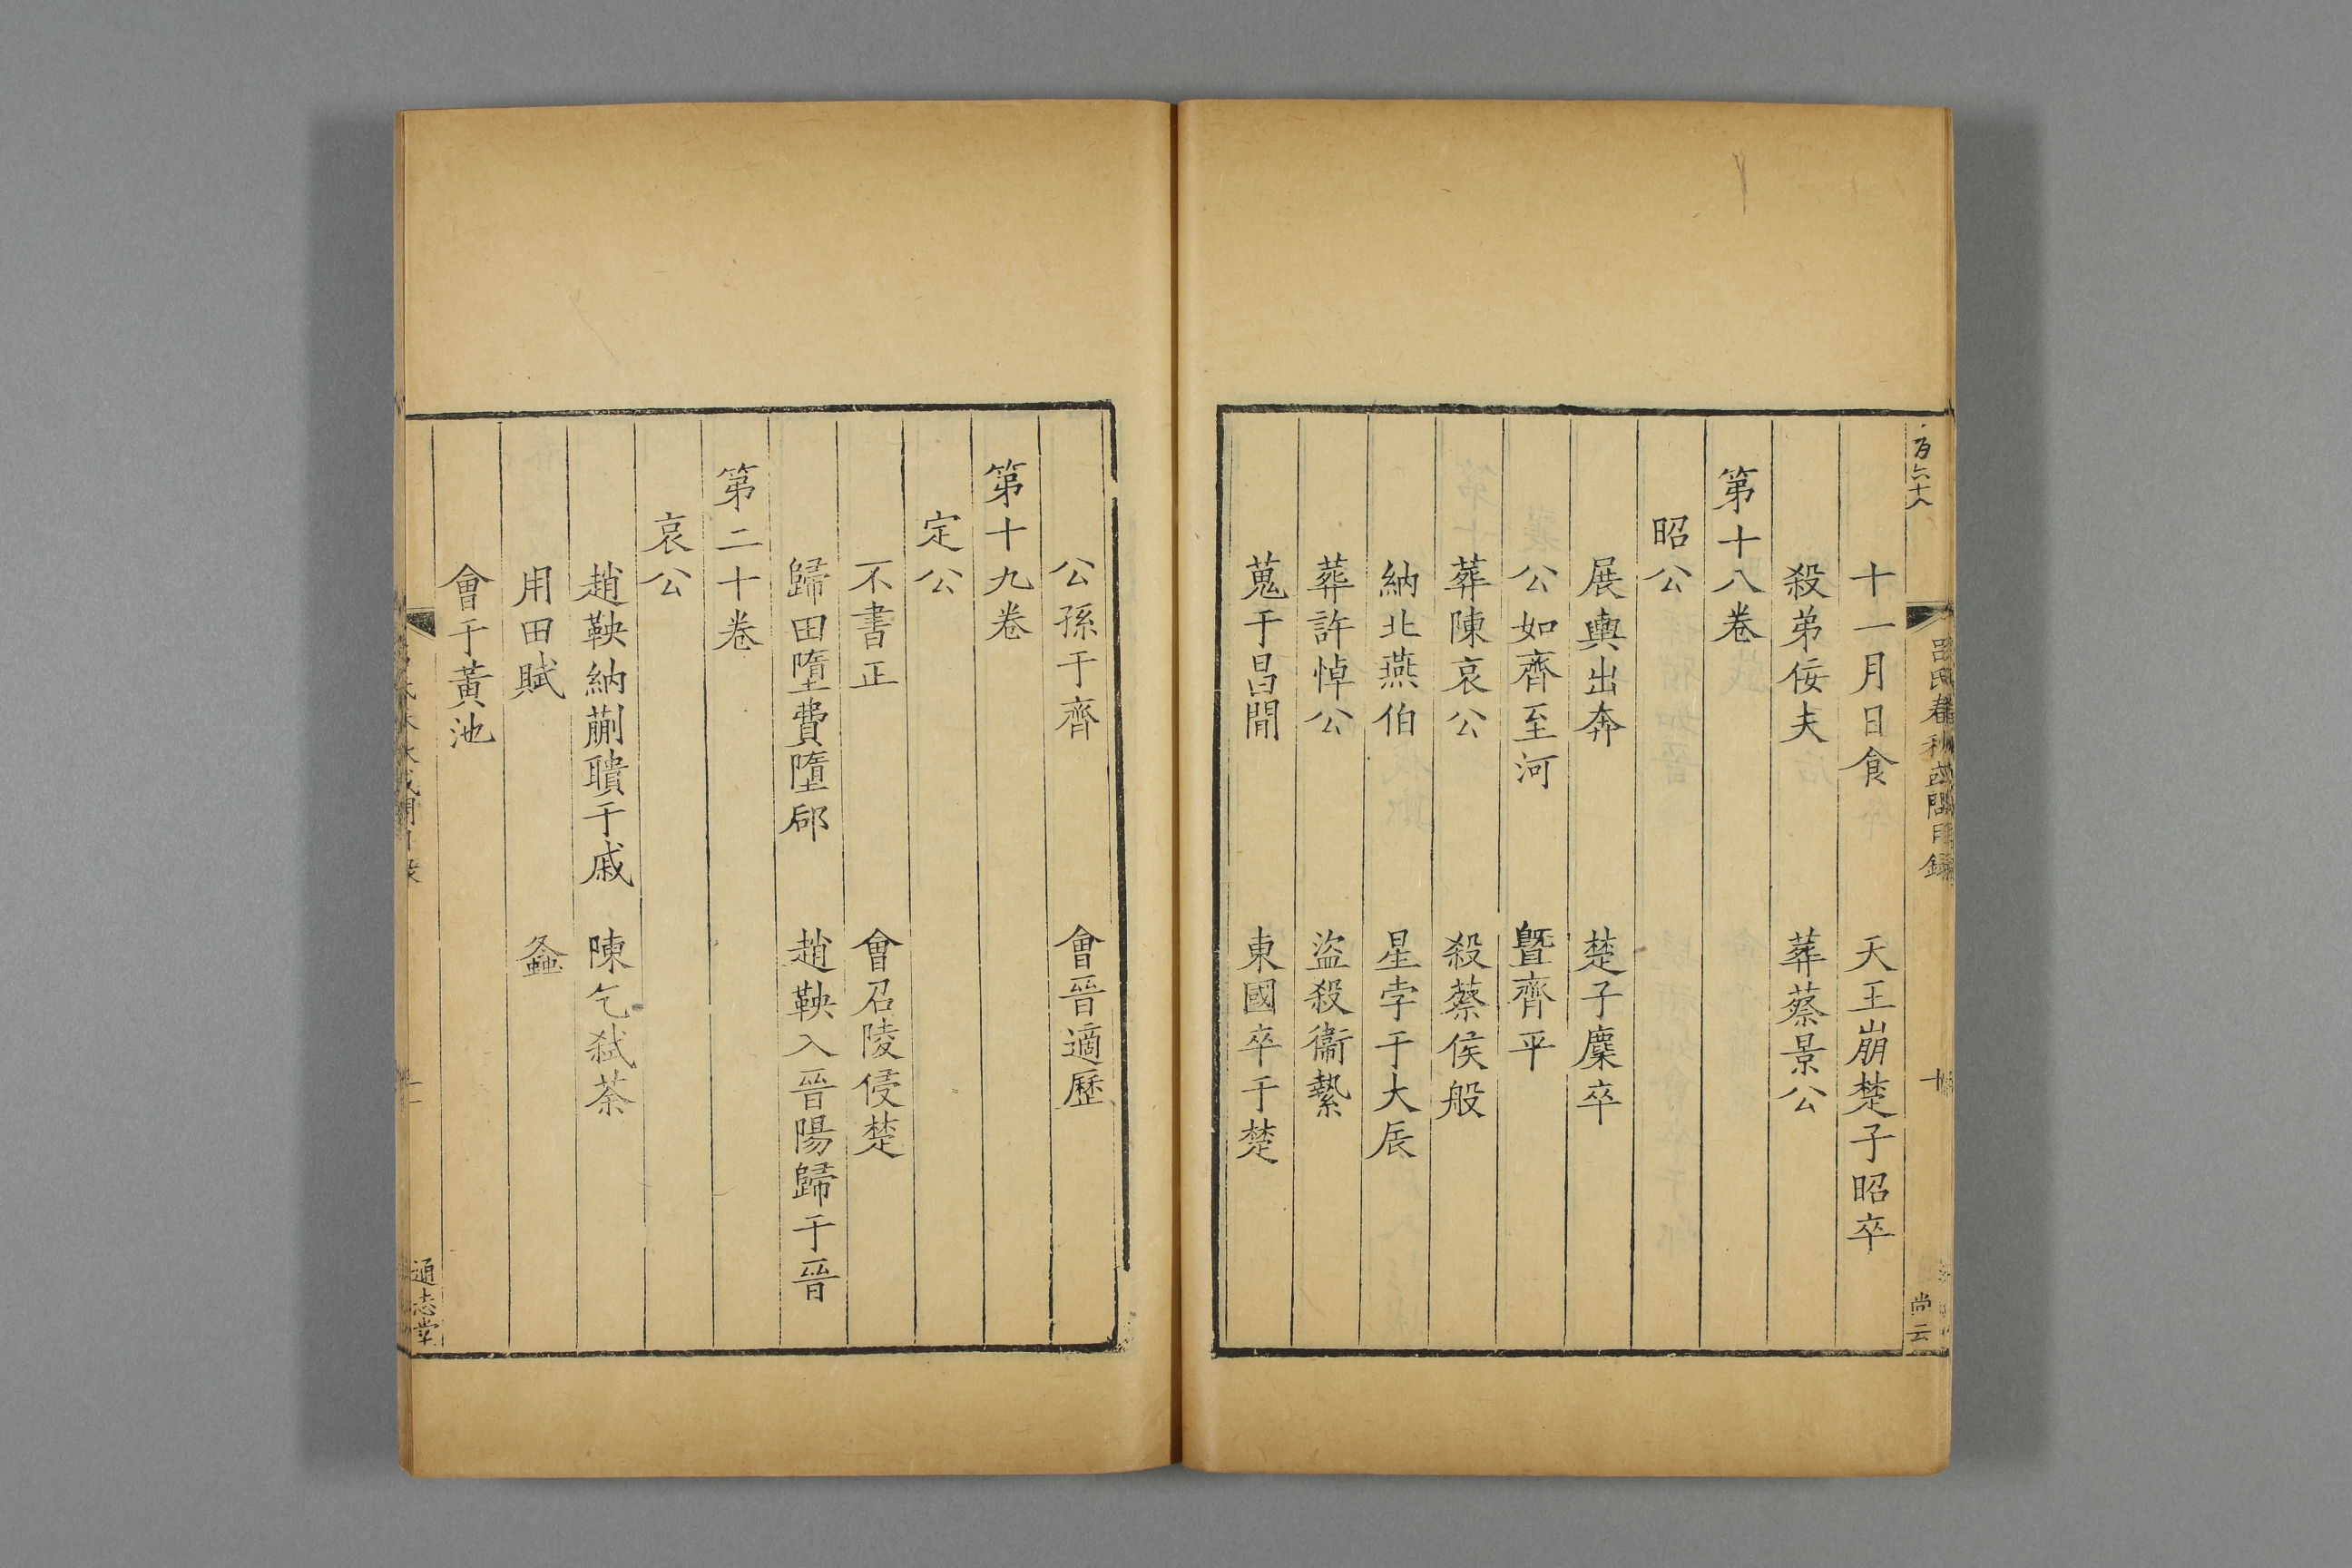 百六十八
呂氏春秋或問目錄
十
尚云
十一月日食　天王崩楚子昭卒
殺弟佞夫　葬蔡景公
第十八卷
昭公
展輿出奔　楚子麇卒
公如齊至河　曁齊平
葬陳哀公　殺蔡侯般
納北燕伯　星孛于大辰
葬許悼公　盜殺衞縶
蒐于昌閒　東國卒于楚
公孫于齊　會晉適歷
第十九卷
定公
不書正　會召陵侵楚
歸田墮費墮郈　趙鞅入晉陽歸于晉
第二十卷
哀公
趙鞅納蒯聵于戚　陳乞弑荼
用田賦　螽
會于黃池
通志堂